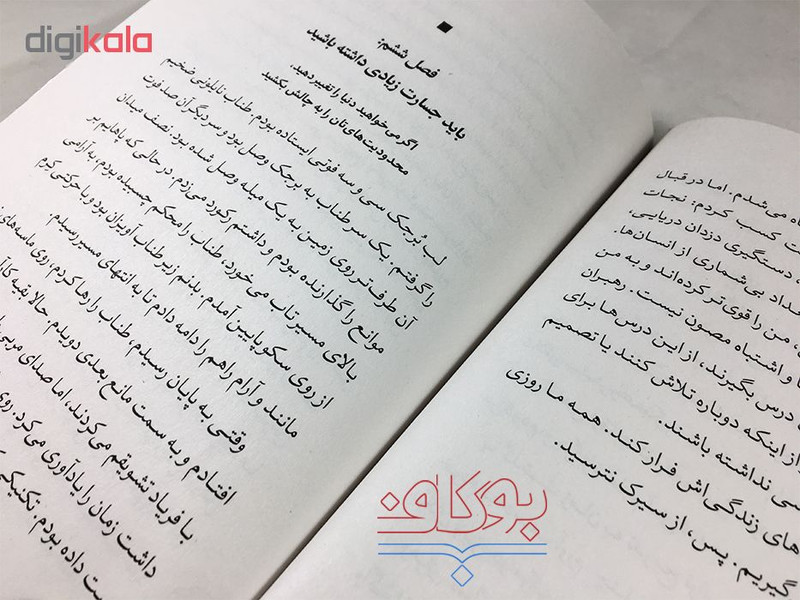 digikala
فصل ششم:
باید جسارت زیادی داشته باشید
اگر می‌خواهید دنیا را تغییر دهید،
محدودیت‌های‌تان را به چالش بکشید
لب بُرجک سی و سه فوتی ایستاده بودم. طناب نایلونی ضخیم
را گرفتم. یک سر طناب به برجک وصل بود و سر دیگر آن صد فوت
آن طرف‌تر روی زمین به یک میله وصل شده بود. نصف میدان
موانع را گذارنده بودم و داشتم رکورد می‌زدم. در حالی که پاهایم بر
بالای مسیر تاب می‌خورد، طناب را محکم چسبیده بودم، به آرامی
از روی سکو پایین آمدم. بدنم زیر طناب آویزان بود و با حرکتی کرم
مانند و آرام راهم را ادامه دادم تا به انتهای مسیر رسیدم.
وقتی به پایان رسیدم، طناب را رها کردم، روی ماسه‌های
افتادم و به سمت مانع بعدی دویدم. حالا بقیه
با فریاد تشویقم می‌کردند، اما صدای مربی
داشت زمان را یادآوری می‌کرد. روی
داده بودم. تکنیکی
می‌شدم. اما در قبال
کسب کردم: نجات
دستگیری دزدان دریایی،
بی‌شماری از انسان‌ها.
من را قوی‌تر کرده‌اند و به من
و اشتباه مصون نیست. رهبران
درس بگیرند، از این درس‌ها برای
از اینکه دوباره تلاش کنند یا تصمیم
نداشته باشند.
های زندگی‌اش فرار کند. همه ما روزی
گیریم. پس، از سیرک نترسید.
بوک‌کافه